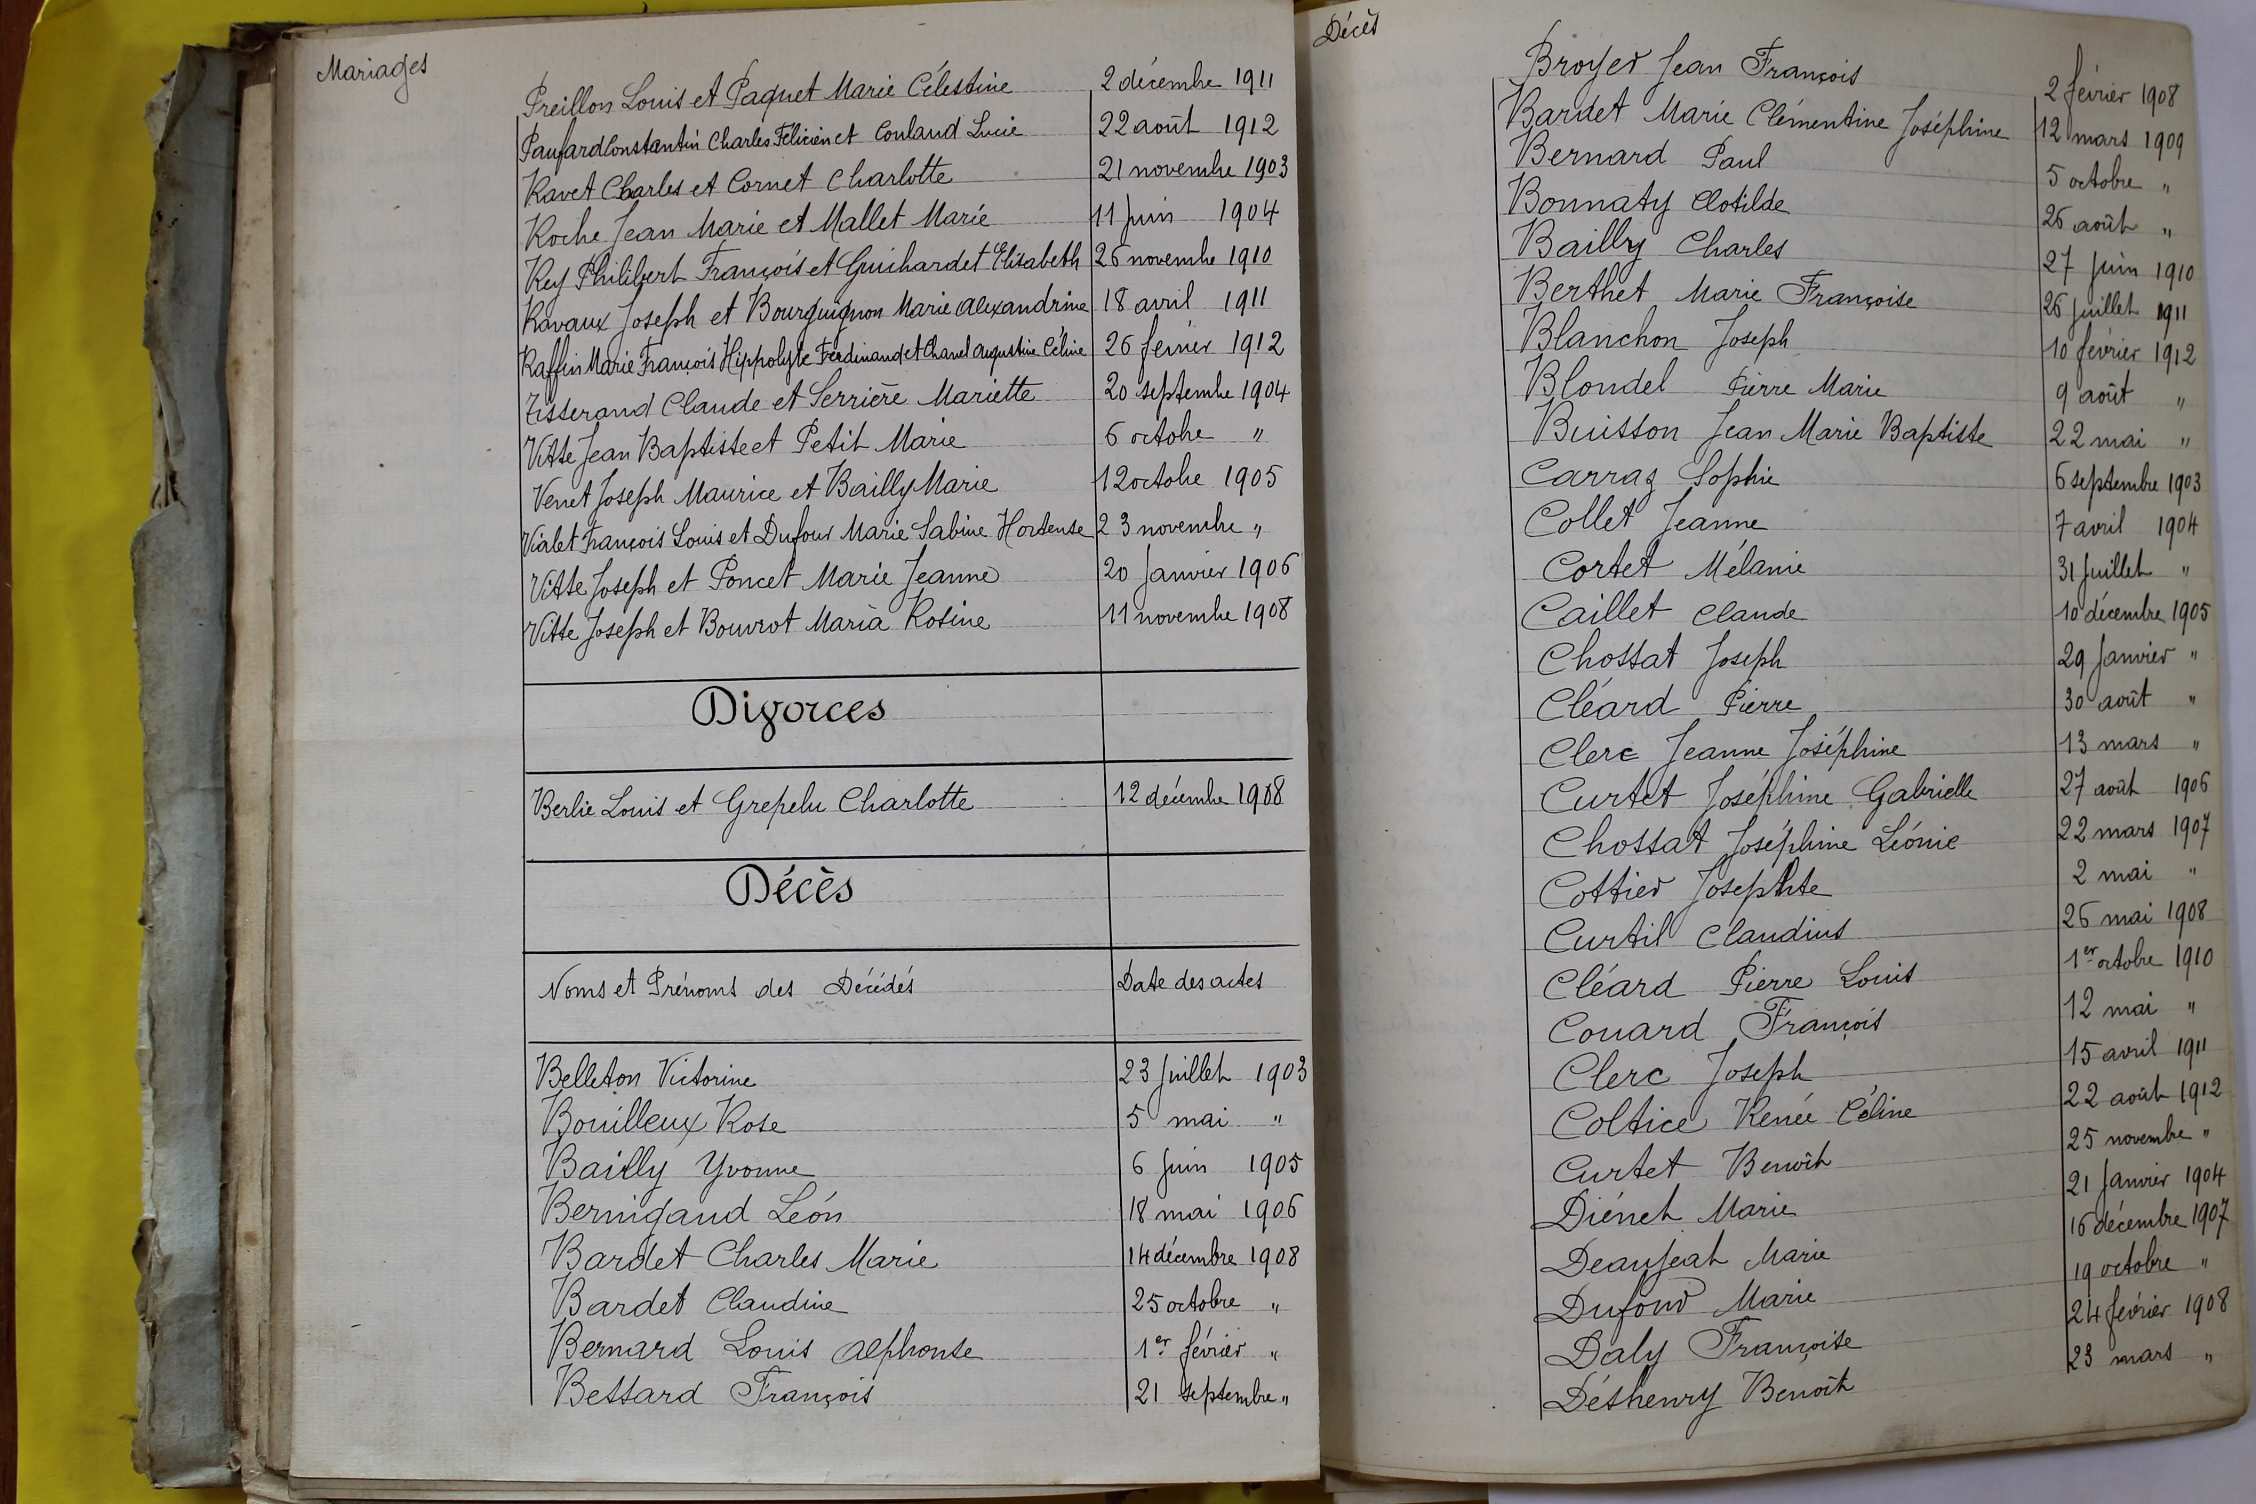 Mariages
Preillon Louis et Paquet Marie Célestine 2 décembre 1911
Paufard Constantin Charles Félicien et Conland Lucie 22 août 1912
Ravet Charles et Cornet Charlotte 21 novembre 1903
Roche Jean Marie et Mallet Marie 11 juin 1904
Rey Philibert François et Guichardet Elisabeth 26 novembre 1910
Ravaux Joseph et Bourguignon Marie Alexandrine 18 avril 1911
Raffin Marie François Hippolyte Ferdinand et Chanel Augustine Céline 26 février 1912
Tisserand Claude et Serrière Mariette 20 septembre 1904
Vitte Jean Baptiste et Petit Marie 6 octobre "
Venet Joseph Maurice et Bailly Marie 12 octobre 1905
Vialet François Louis et Dufour Marie Sabine Hortense 23 novembre "
Vitte Joseph et Poncet Marie Jeanne 20 janvier 1906
Vitte Joseph et Bouvrot Maria Rosine 11 novembre 1908
Divorces
Berlie Louis et Grepelu Charlotte 12 décembre 1908
Décès
Noms et Prénoms des Décédés Date des actes
Belleton Victorine 23 juillet 1903
Bouilleux Rose 5 mai "
Bailly Yvonne 6 juin 1905
Bernigaud Léon 18 mai 1906
Bardet Charles Marie 14 décembre 1908
Bardet Claudine 25 octobre "
Bernard Louis Alphonse 1er février "
Bessard François 21 septembre "
Décès
Broyer Jean François 2 février 1908
Bardet Marie Clémentine Joséphine 12 mars 1909
Bernard Paul 5 octobre "
Bonnaty Clotilde 26 août "
Bailly Charles 27 juin 1910
Berthet Marie Françoise 26 juillet 1911
Blanchon Joseph 10 février 1912
Blondel Pierre Marie 9 août "
Buisson Jean Marie Baptiste 22 mai "
Carraz Sophie 6 septembre 1903
Collet Jeanne 7 avril 1904
Cortet Mélanie 31 juillet "
Caillet Claude 10 décembre 1905
Chossat Joseph 29 janvier "
Cléard Pierre 30 août "
Clerc Jeanne Joséphine 13 mars "
Curtet Joséphine Gabrielle 27 août 1906
Chossat Joséphine Léonie 22 mars 1907
Cottier Josephte 2 mai "
Curtil Claudius 26 mai 1908
Cléard Pierre Louis 1er octobre 1910
Couard François 12 mai "
Clerc Joseph 15 avril 1911
Coltice Renée Céline 22 août 1912
Curtet Benoît 25 novembre "
Diénet Marie 21 janvier 1904
Deaujeat Marie 16 décembre 1907
Dufour Marie 19 octobre "
Daly Françoise 24 février 1908
Déshenry Benoît 23 mars "